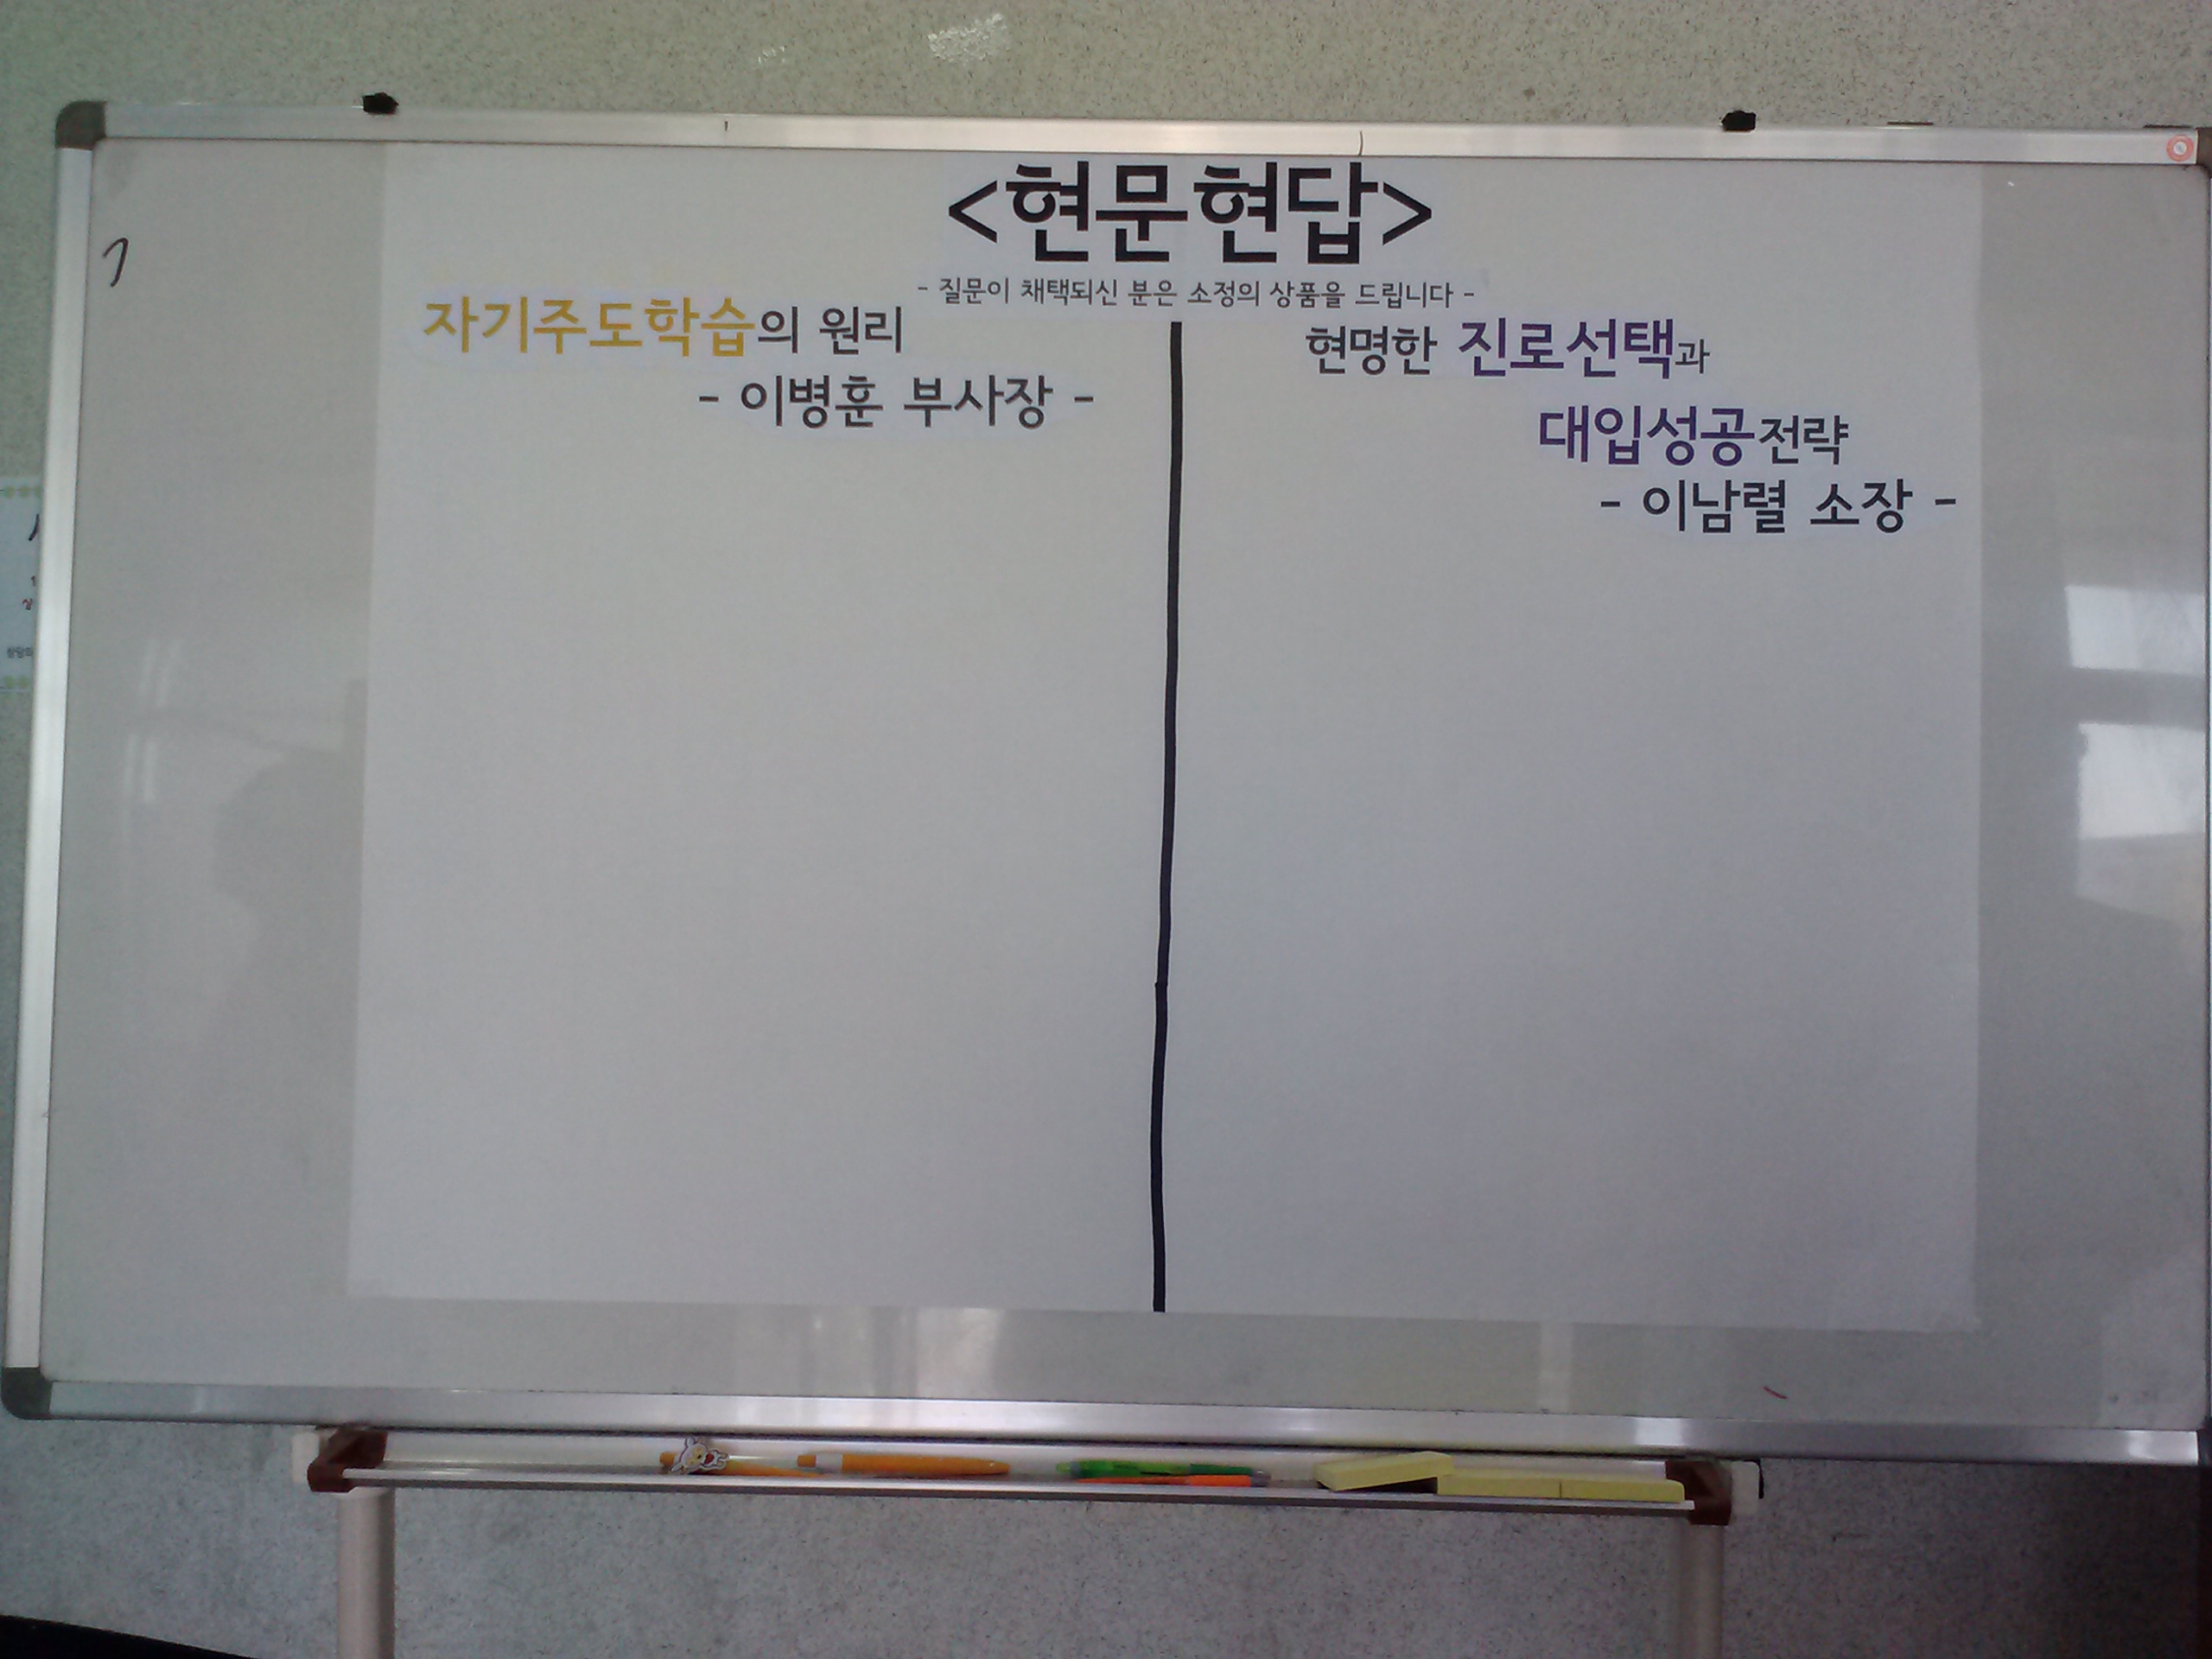 <현문현답>
- 질문이 채택되신 분은 소정의 상품을 드립니다 -
자기주도학습의 원리
- 이병훈 부사장 -
현명한 진로선택과
대입성공전략
- 이남렬 소장 -